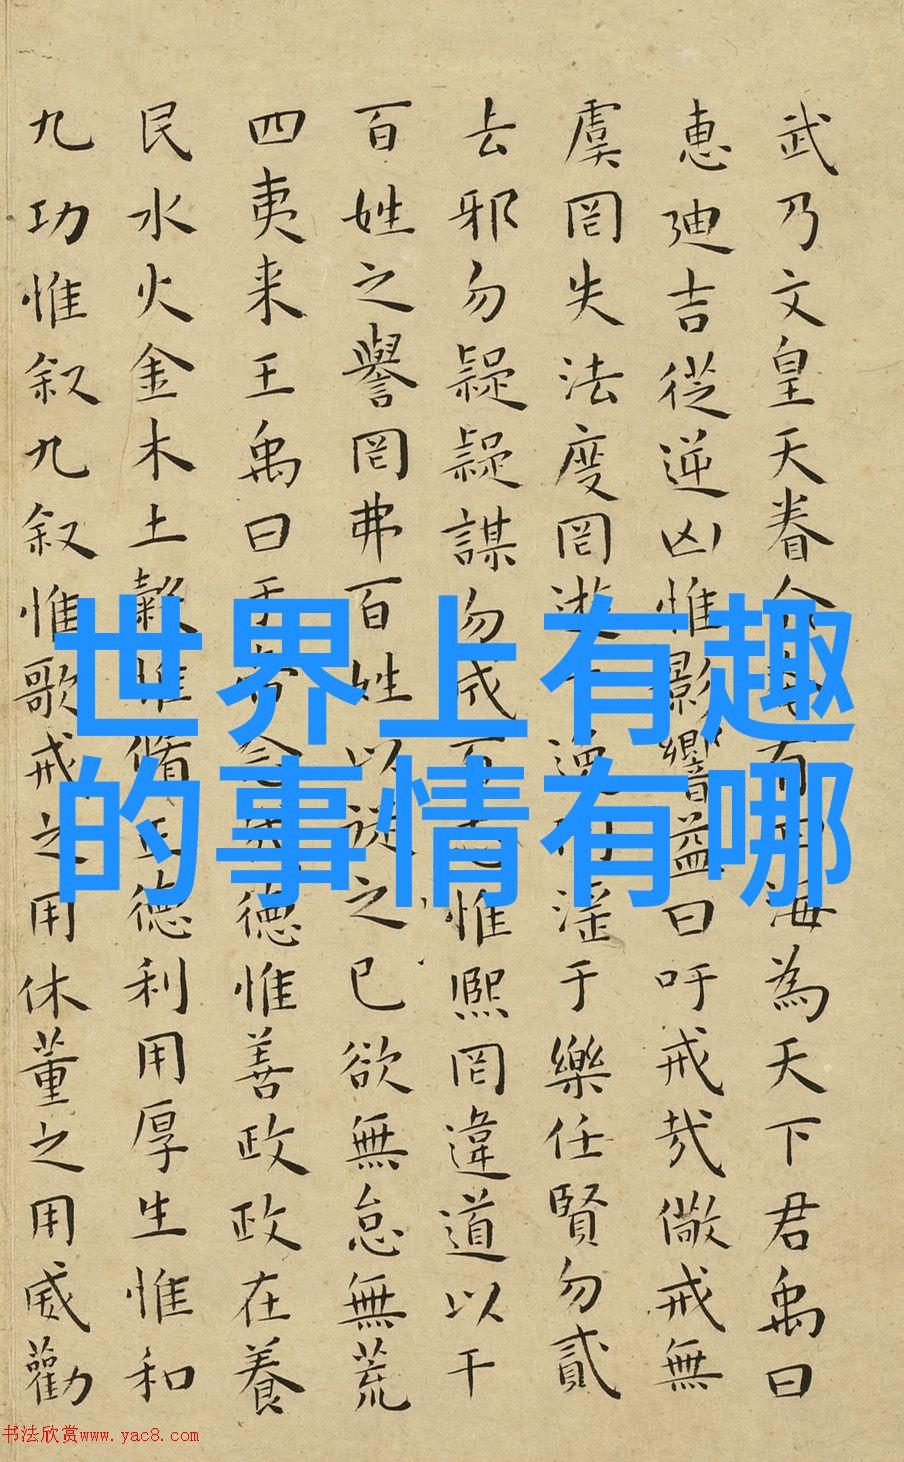 武乃文皇天眷命有海為天下君禹曰
惠迪吉從逆凶惟影響益曰吁戒哉儆戒無
虞罔失法度罔遊淫于樂任賢勿貳
去邪勿疑疑謀勿成百惟熙罔違道以干
百姓之譽罔弗百姓以從之己欲無怠無荒
四夷来王禹曰于念德惟善政政在養
民水火金木土穀惟脩正德利用厚生惟和
九功惟叙九叙惟歌戒之用休董之用威勸
世界上有趣
的事情有哪
书法欣赏www.yac8.com